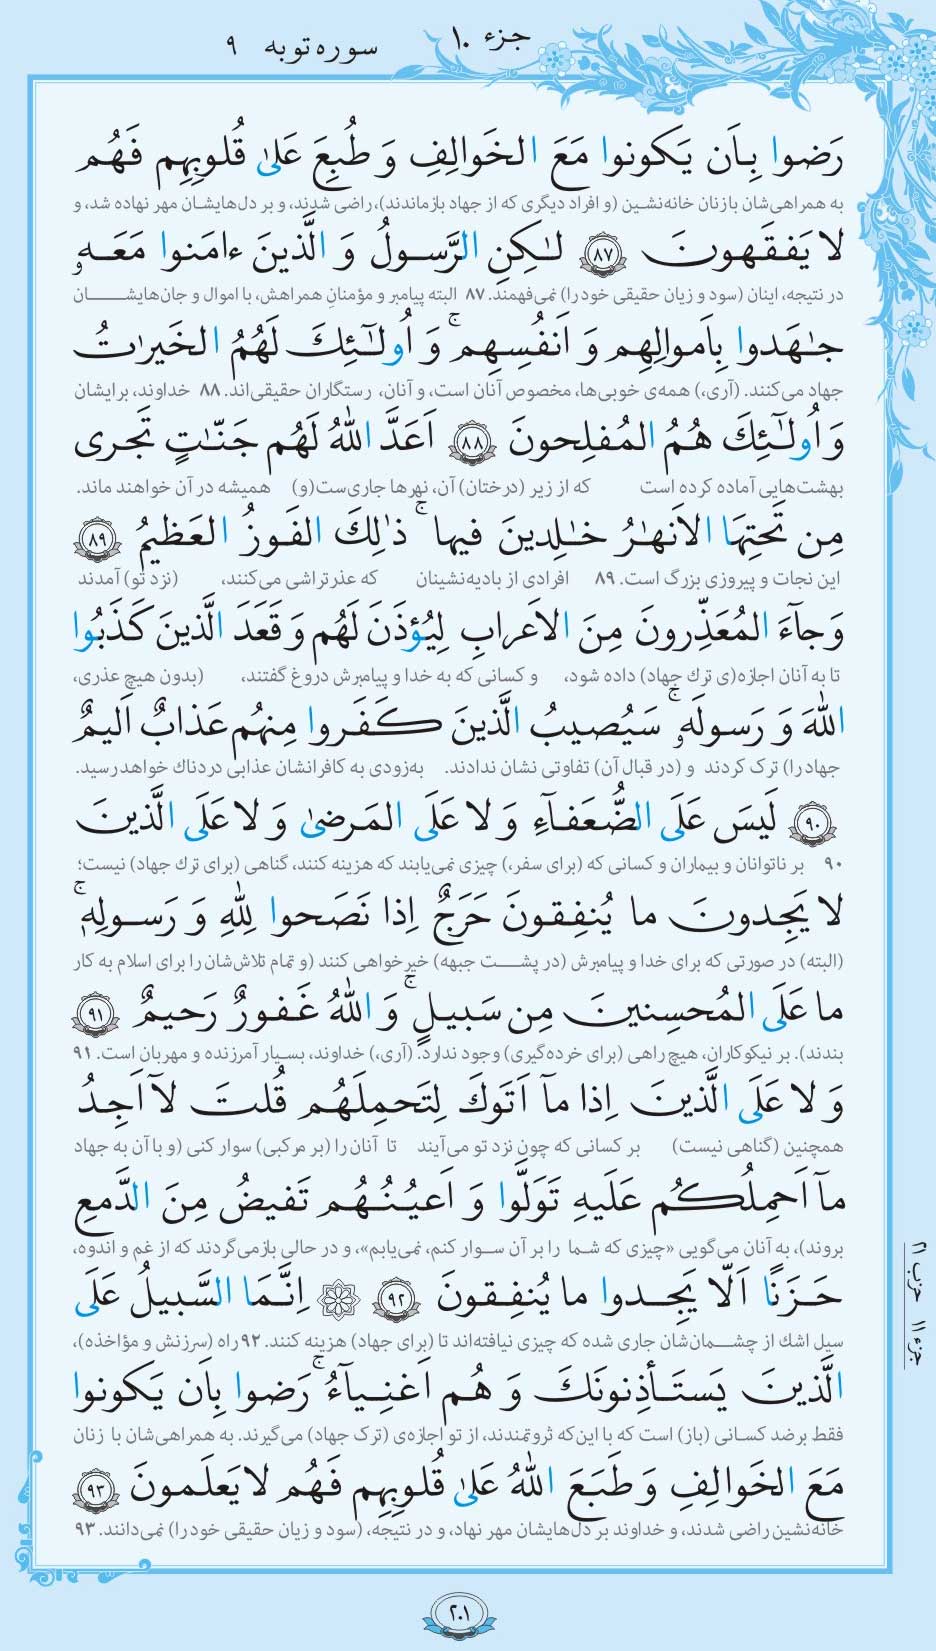 جزء ۱۰ سوره توبه ۹
رَضوا بِاَن يَكونوا مَعَ الخَوالِفِ وَ طُبِعَ عَلىٰ قُلوبِهِم فَهُم
به همراهی‌شان با زنان خانه‌نشین (و افراد دیگری که از جهاد بازماندند)، راضی شدند، و بر دل‌هایشان مهر نهاده شد، و
لا يَفقَهونَ ﴿۸۷﴾ لٰكِنِ الرَّسولُ وَ الَّذينَ ءامَنوا مَعَهو
در نتیجه، اینان (سود و زیان حقیقی خود را) نمی‌فهمند. ۸۷ البته پیامبر و مؤمنانِ همراهش، با اموال و جان‌هایشان
جٰهَدوا بِاَموالِهِم وَ اَنفُسِهِم ۚ وَ اُولٰٓئِكَ لَهُمُ الخَيرٰتُ
جهاد می‌کنند. (آری،) همه‌ی خوبی‌ها، مخصوص آنان است، و آنان، رستگاران حقیقی‌اند. ۸۸ خداوند، برایشان
وَ اُولٰٓئِكَ هُمُ المُفلِحونَ ﴿۸۸﴾ اَعَدَّ اللهُ لَهُم جَنّٰتٍ تَجرى
بهشت‌هایی آماده کرده است که از زیر (درختان) آن، نهرها جاری‌ست (و) همیشه در آن خواهند ماند.
مِن تَحتِهَا الاَنهٰرُ خٰلِدينَ فيها ۚ ذٰلِكَ الفَوزُ العَظيمُ ﴿۸۹﴾
این نجات و پیروزی بزرگ است. ۸۹ افرادی از بادیه‌نشینان که عذرتراشی می‌کنند، (نزد تو) آمدند
وَ جآءَ المُعَذِّرونَ مِنَ الاَعرابِ لِيُؤذَنَ لَهُم وَ قَعَدَ الَّذينَ كَذَبُوا
تا به آنان اجازه(ی ترك جهاد) داده شود، و کسانی که به خدا و پیامبرش دروغ گفتند، (بدون هیچ عذری،
اللهَ وَ رَسولَهو ۚ سَيُصيبُ الَّذينَ كَفَروا مِنهُم عَذابٌ اَليمٌ
جهاد را) ترك کردند و (در قبال آن) تفاوتی نشان ندادند. به‌زودی به کافرانشان عذابی دردناك خواهد رسید.
﴿۹۰﴾ لَيسَ عَلَى الضُّعَفآءِ وَ لا عَلَى المَرضىٰ وَ لا عَلَى الَّذينَ
۹۰ بر ناتوانان و بیماران و کسانی که (برای سفر،) چیزی نمی‌یابند که هزینه کنند، گناهی (برای ترك جهاد) نیست؛
لا يَجِدونَ ما يُنفِقونَ حَرَجٌ اِذا نَصَحوا لِلّٰهِ وَ رَسولِهٖ ۚ
(البته) در صورتی که برای خدا و پیامبرش (در پشت جبهه) خیرخواهی کنند (و تمام تلاش‌شان را برای اسلام به کار
ما عَلَى المُحسِنينَ مِن سَبيلٍ ۚ وَ اللهُ غَفورٌ رَحيمٌ ﴿۹۱﴾
بندند). بر نیکوکاران، هیچ راهی (برای خرده‌گیری) وجود ندارد. (آری،) خداوند، بسیار آمرزنده و مهربان است. ۹۱
وَ لا عَلَى الَّذينَ اِذا مآ اَتَوكَ لِتَحمِلَهُم قُلتَ لآ اَجِدُ
همچنین (گناهی نیست) بر کسانی که چون نزد تو می‌آیند تا آنان را (بر مرکبی) سوار کنی (و با آن به جهاد
مآ اَحمِلُكُم عَلَيهِ تَوَلَّوا وَ اَعيُنُهُم تَفيضُ مِنَ الدَّمعِ
بروند)، به آنان می‌گویی «چیزی که شما را بر آن سوار کنم، نمی‌یابم»، و در حالی بازمی‌گردند که از غم و اندوه،
حَزَنًا اَلّا يَجِدوا ما يُنفِقونَ ﴿۹۲﴾ ۞ اِنَّمَا السَّبيلُ عَلَى
سیل اشك از چشمان‌شان جاری شده که چیزی نیافته‌اند تا (برای جهاد) هزینه کنند. ۹۲ راه (سرزنش و مؤاخذه)،
الَّذينَ يَستَأذِنونَكَ وَ هُم اَغنِيآءُ ۚ رَضوا بِاَن يَكونوا
فقط بر ضد کسانی (باز) است که با این‌که ثروتمندند، از تو اجازه‌ی (ترك جهاد) می‌گیرند. به همراهی‌شان با زنان
مَعَ الخَوالِفِ وَ طَبَعَ اللهُ عَلىٰ قُلوبِهِم فَهُم لا يَعلَمونَ ﴿۹۳﴾
خانه‌نشین راضی شدند، و خداوند بر دل‌هایشان مهر نهاد، و در نتیجه، (سود و زیان حقیقی خود را) نمی‌دانند. ۹۳
حزب ۲۱
جزء ۱۱
۲۰۱